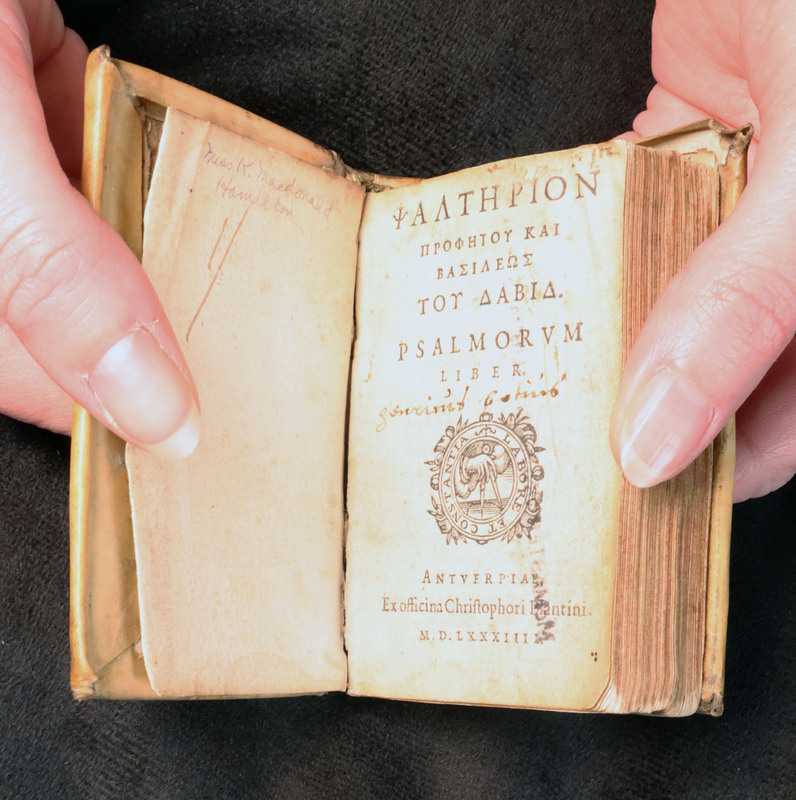 Miss K. Macdonald
Hamilton
ΨΑΛΤΗΡΙΟΝ
ΠΡΟΦΗΤΟΥ ΚΑΙ
ΒΑΣΙΛΕΩΣ
ΤΟΥ ΔΑΒΙΔ.
PSALMORVM
LIBER.
LABORE ET CONSTANTIA
ANTVERPIAE,
Ex officina Christophori Plantini.
M. D. LXXXIIII.